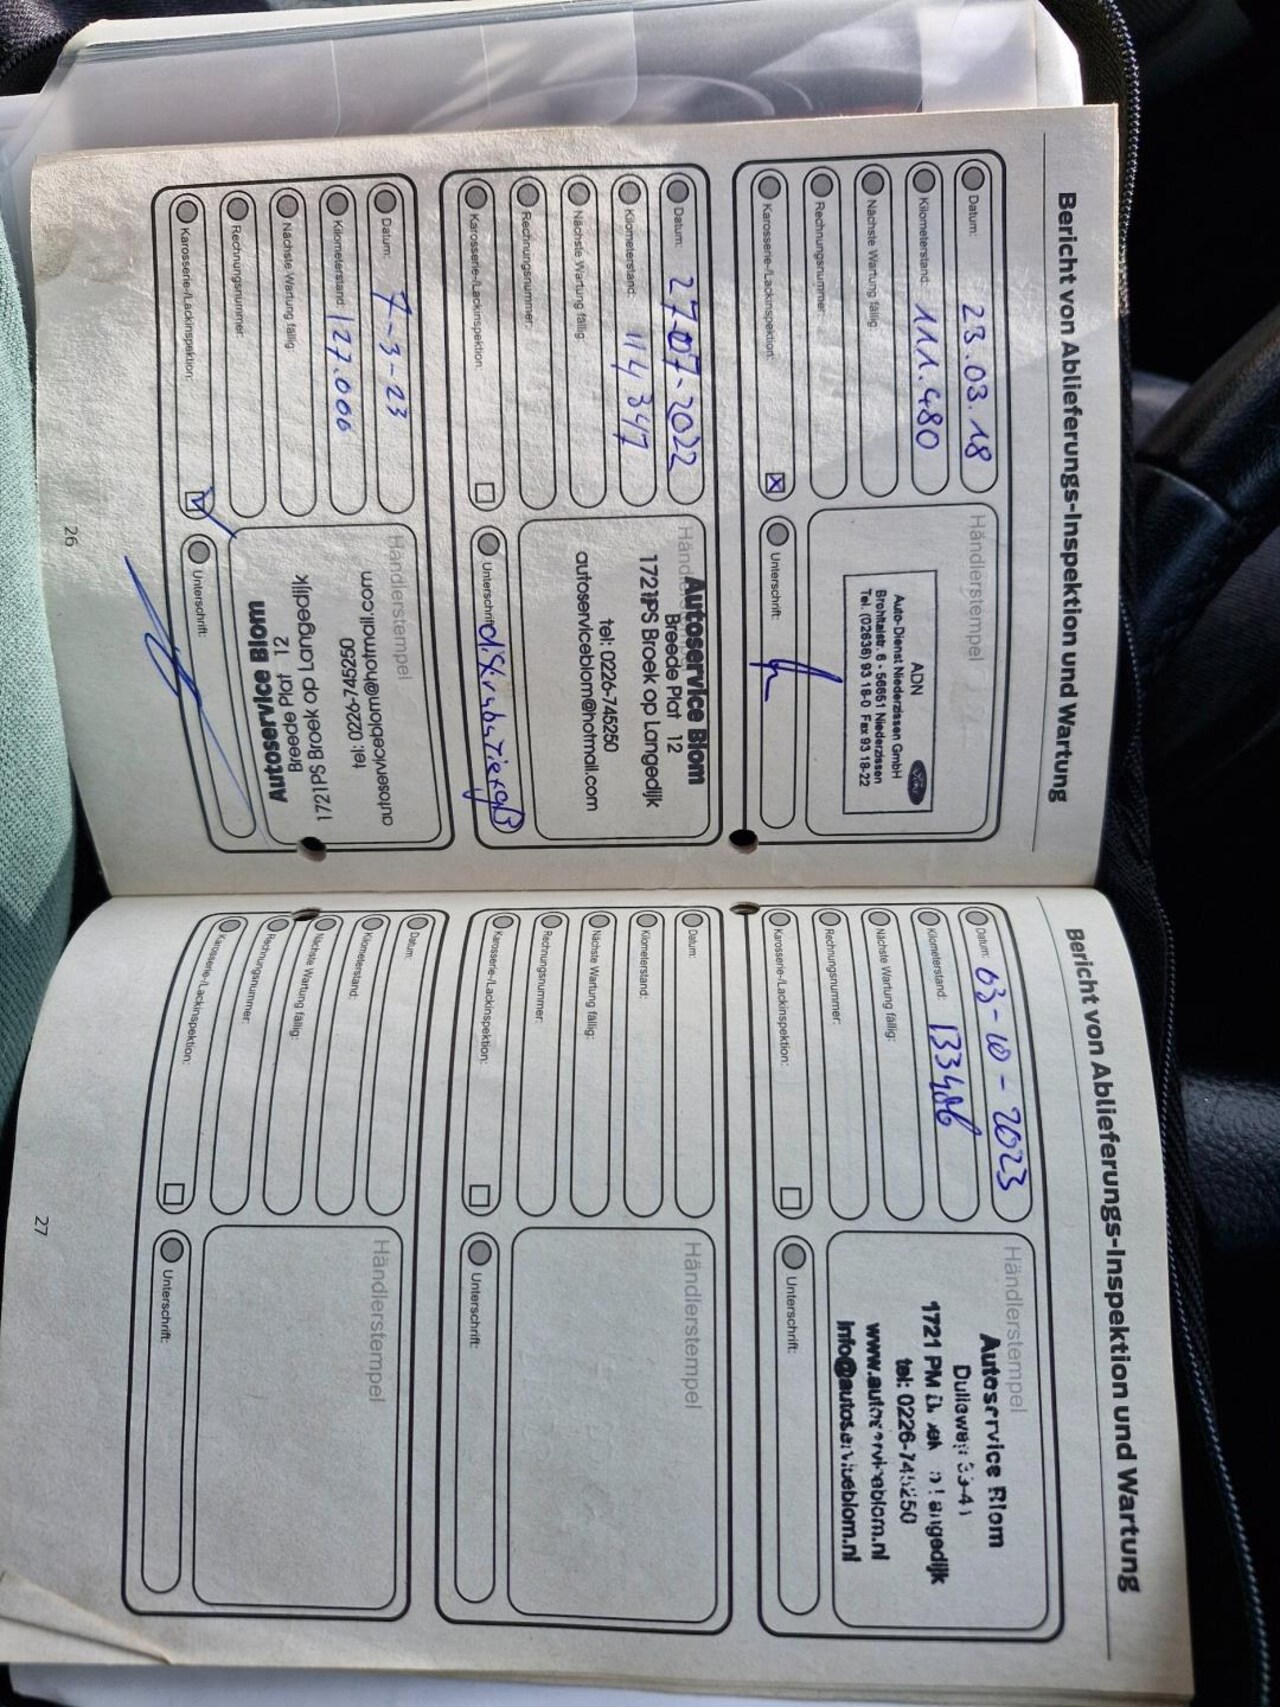 Bericht von Ablieferungs-Inspektion und Wartung
Datum: 23.03.18
Kilometerstand: 111.480
Nächste Wartung fällig:
Rechnungsnummer:
Karosserie-/Lackinspektion: x
Händlerstempel
ADN
Auto-Dienst Niederzissen GmbH
Brohltalstr. 6 - 56651 Niederzissen
Tel. (02636) 93 18-0 Fax 93 18-22
Unterschrift:
Datum: 27-07-2022
Kilometerstand: 114347
Nächste Wartung fällig:
Rechnungsnummer:
Karosserie-/Lackinspektion:
Händlerstempel
Autoservice Blom
Breede Plat 12
1721PS Broek op Langedijk
tel: 0226-745250
autoserviceblom@hotmail.com
Unterschrift:
Datum: 7-3-23
Kilometerstand: 127.000
Nächste Wartung fällig:
Rechnungsnummer:
Karosserie-/Lackinspektion:
Händlerstempel
autoserviceblom@hotmail.com
tel: 0226-745250
1721PS Broek op Langedijk
Breede Plat 12
Autoservice Blom
Unterschrift:
26
Bericht von Ablieferungs-Inspektion und Wartung
Datum: 03-10-2023
Kilometerstand: 133406
Nächste Wartung fällig:
Rechnungsnummer:
Karosserie-/Lackinspektion:
Händlerstempel
Autoservice Blom
1721 PM
tel: 0226-745250
www.autoserviceblom.nl
info@autoserviceblom.nl
Unterschrift:
Datum:
Kilometerstand:
Nächste Wartung fällig:
Rechnungsnummer:
Karosserie-/Lackinspektion:
Händlerstempel
Unterschrift:
Datum:
Kilometerstand:
Nächste Wartung fällig:
Rechnungsnummer:
Karosserie-/Lackinspektion:
Händlerstempel
Unterschrift:
27